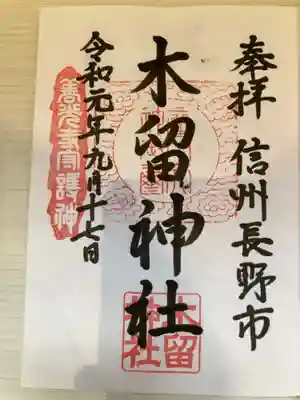 奉拝 信州長野市
木留神社
令和元年九月十七日
木留
神社